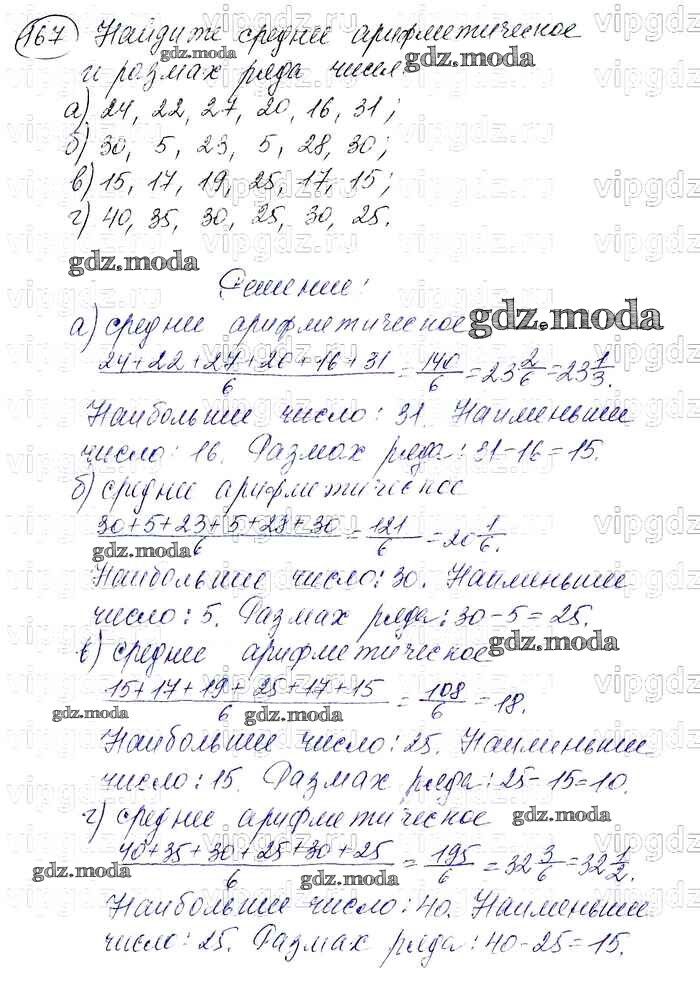 167 Найдите среднее арифметическое
gdz.moda
и размах ряда чисел:
gdz.moda
а) 24, 22, 27, 20, 16, 31;
б) 30, 5, 23, 5, 28, 30;
в) 15, 17, 19, 25, 17, 15;
г) 40, 35, 30, 25, 30, 25.
gdz.moda
Решение:
а) среднее арифметическое gdz.moda
24+22+27+20+16+31/6 = 140/6 = 23 2/6 = 23 1/3.
Наибольшее число: 31. Наименьшее
число: 16. Размах ряда: 31-16=15.
б) среднее арифметическое
30+5+23+5+28+30/6 = 121/6 = 20 1/6.
gdz.moda
Наибольшее число: 30. Наименьшее
число: 5. Размах ряда: 30-5=25.
gdz.moda
в) среднее арифметическое
15+17+19+25+17+15/6 = 108/6 = 18.
gdz.moda gdz.moda
Наибольшее число: 25. Наименьшее
число: 15. Размах ряда: 25-15=10.
г) среднее арифметическое gdz.moda
40+35+30+25+30+25/6 = 195/6 = 32 3/6 = 32 1/2.
gdz.moda gdz.moda
Наибольшее число: 40. Наименьшее
число: 25. Размах ряда: 40-25=15.